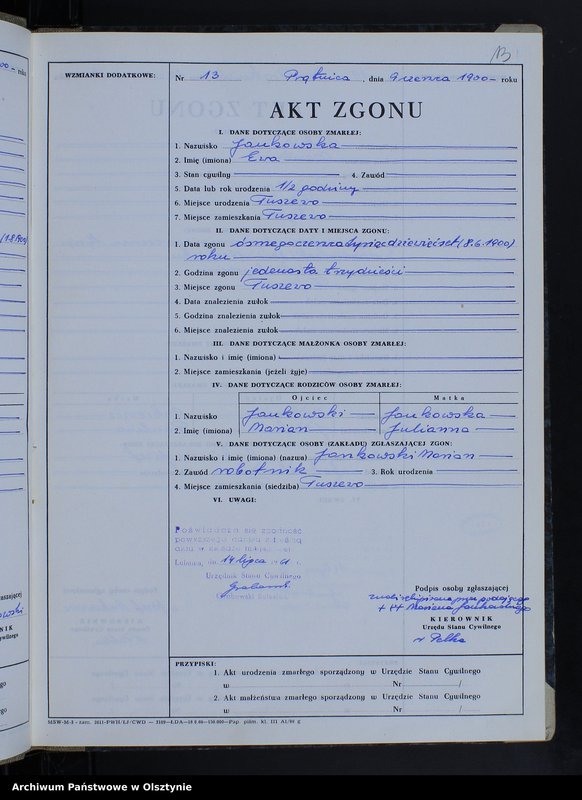 13
WZMIANKI DODATKOWE:
Nr 13 Prątnica, dnia 9 czerwca 1900 — roku
AKT ZGONU
I. DANE DOTYCZĄCE OSOBY ZMARŁEJ:
1. Nazwisko Jankowska
2. Imię (imiona) Ewa
3. Stan cywilny 4. Zawód
5. Data lub rok urodzenia 1/2 godziny
6. Miejsce urodzenia Tuszewo
7. Miejsce zamieszkania Tuszewo
II. DANE DOTYCZĄCE DATY I MIEJSCA ZGONU:
1. Data zgonu ósmego czerwca tysiąc dziewięćset (8.6.1900)
roku
2. Godzina zgonu jedenasta trzydzieści
3. Miejsce zgonu Tuszewo
4. Data znalezienia zwłok
5. Godzina znalezienia zwłok
6. Miejsce znalezienia zwłok
III. DANE DOTYCZĄCE MAŁŻONKA OSOBY ZMARŁEJ:
1. Nazwisko i imię (imiona)
2. Miejsce zamieszkania (jeżeli żyje)
IV. DANE DOTYCZĄCE RODZICÓW OSOBY ZMARŁEJ:
Ojciec Matka
1. Nazwisko Jankowski Jankowska
2. Imię (imiona) Marian Julianna
V. DANE DOTYCZĄCE OSOBY (ZAKŁADU) ZGŁASZAJĄCEJ ZGON:
1. Nazwisko i imię (imiona) (nazwa) Jankowski Marian
2. Zawód robotnik 3. Rok urodzenia
4. Miejsce zamieszkania (siedziba) Tuszewo
VI. UWAGI:
Poświadcza się zgodność
powyższego z treścią
aktu w
Lubawa, dn. 14 lipca 61 r.
Urzędnik Stanu Cywilnego
Podpis osoby zgłaszającej
+++ Mariana Jankowskiego
KIEROWNIK
Urzędu Stanu Cywilnego
Pelka
PRZYPISKI:
1. Akt urodzenia zmarłego sporządzony w Urzędzie Stanu Cywilnego
w Nr /
2. Akt małżeństwa zmarłego sporządzony w Urzędzie Stanu Cywilnego
w Nr /
Archiwum Państwowe w Olsztynie